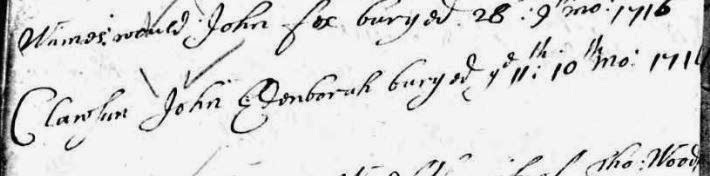 Wimeswould John Fox buryed 28: 9th mo: 1716
Clawson John Edenborah buryed ye 11th: 10th mo: 1716
Tho: Wood